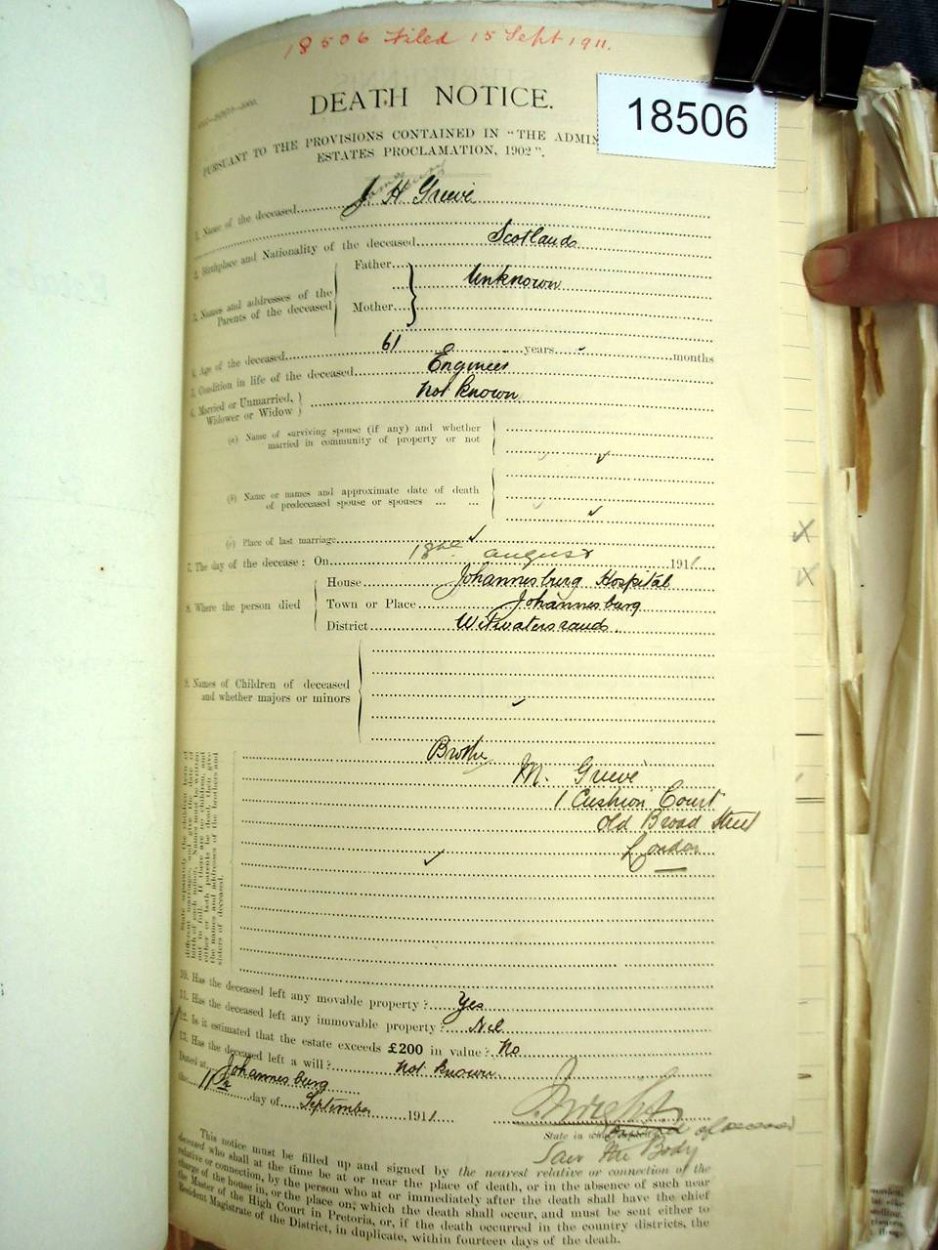 18506 Filed 15 Sept 1911.
DEATH NOTICE.
18506
PURSUANT TO THE PROVISIONS CONTAINED IN "THE ADMIN
ESTATES PROCLAMATION, 1902".
1. Name of the deceased J H Greeve
2. Birthplace and Nationality of the deceased Scotland
3. Names and addresses of the Parents of the deceased
Father
Unknown
Mother
4. Age of the deceased 61 years - months
5. Condition in life of the deceased Engineer
6. Married or Unmarried, Widower or Widow
not known
(a) Name of surviving spouse (if any) and whether
married in community of property or not
(b) Name or names and approximate date of death
of predeceased spouse or spouses ... ...
(c) Place of last marriage
7. The day of the decease: On 18th august 1911
8. Where the person died
House Johannesburg Hospital
Town or Place Johannesburg
District Witwatersrand.
9. Names of Children of deceased
and whether majors or minors
Brother
M. Grieve
1 Cushion Court
Old Broad Street
London
State separately the children born of
different marriages, and give the date of
birth of each minor. Names must be written
out in full. If there are no children, and
either or both parents be dead, then give
the names and addresses of the brothers and
sisters of deceased.
10. Has the deceased left any movable property? Yes
11. Has the deceased left any immovable property? Nil
12. Is it estimated that the estate exceeds £200 in value? No
13. Has the deceased left a will? not known
Dated at Johannesburg
the 11th day of September 1911
State in wh of deceased
Saw the Body
This notice must be filled up and signed by the nearest relative or connection of the
deceased who shall at the time be at or near the place of death, or in the absence of such near
relative or connection, by the person who at or immediately after the death shall have the chief
charge of the house in, or the place on, which the death shall occur, and must be sent either to
the Master of the High Court in Pretoria, or, if the death occurred in the country districts, the
Resident Magistrate of the District, in duplicate, within fourteen days of the death.